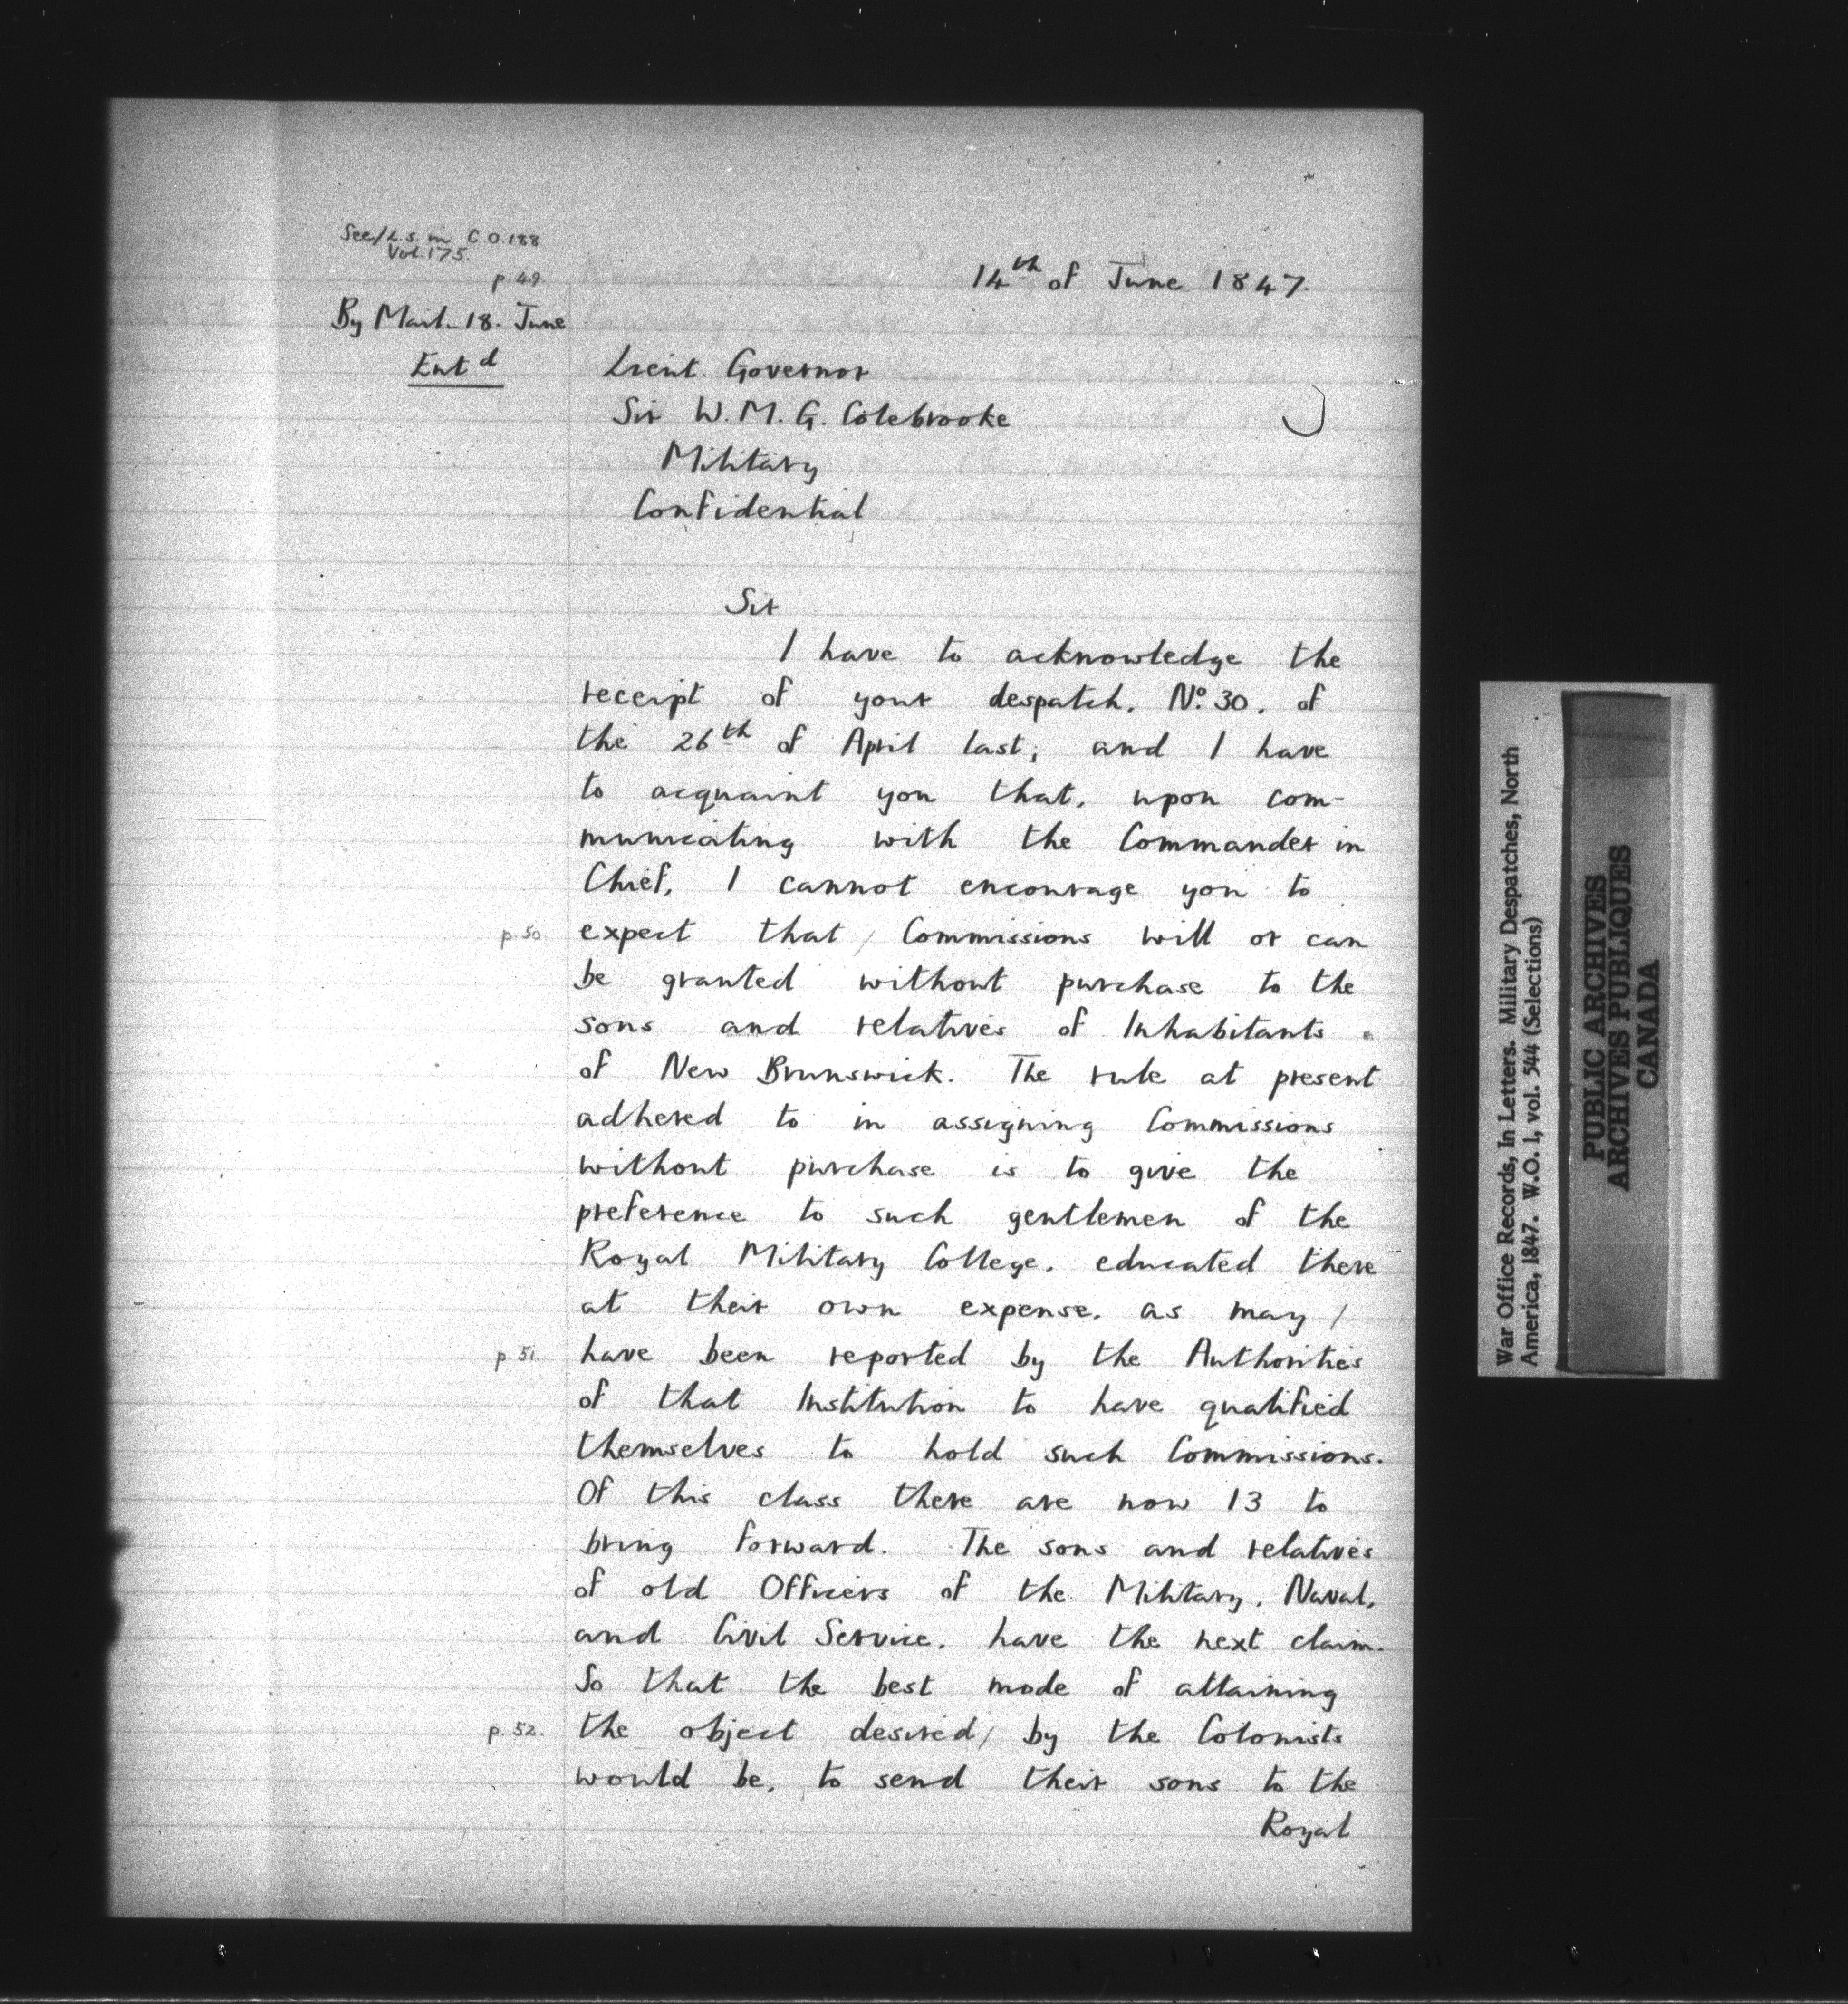 See/L.S. in C.O.188
Vol.175.
p.49.
14th of June 1847.
By Mail. 18. June
Entd
Lieut. Governor
Sir W.M.G. Colebrooke
Military
Confidential
Sir
I have to acknowledge the
receipt of your despatch, No. 30, of
the 26th of April last; and I have
to acquaint you that, upon com-
municating with the Commander in
Chief, I cannot encourage you to
p.50. expect that / Commissions will or can
be granted without purchase to the
sons and relatives of Inhabitants
of New Brunswick. The rule at present
adhered to in assigning Commissions
without purchase is to give the
preference to such gentlemen of the
Royal Military College, educated there
at their own expense, as may /
p.51. have been reported by the Authorities
of that Institution to have qualified
themselves to hold such Commissions.
Of this class there are now 13 to
bring forward. The sons and relatives
of old Officers of the Military, Naval,
and Civil Service, have the next claim.
So that the best mode of attaining
p.52. the object desired / by the Colonists
would be, to send their sons to the
Royal
War Office Records, In Letters. Military Despatches, North
America, 1847. W.O. 1, vol. 544 (Selections)
PUBLIC ARCHIVES
ARCHIVES PUBLIQUES
CANADA